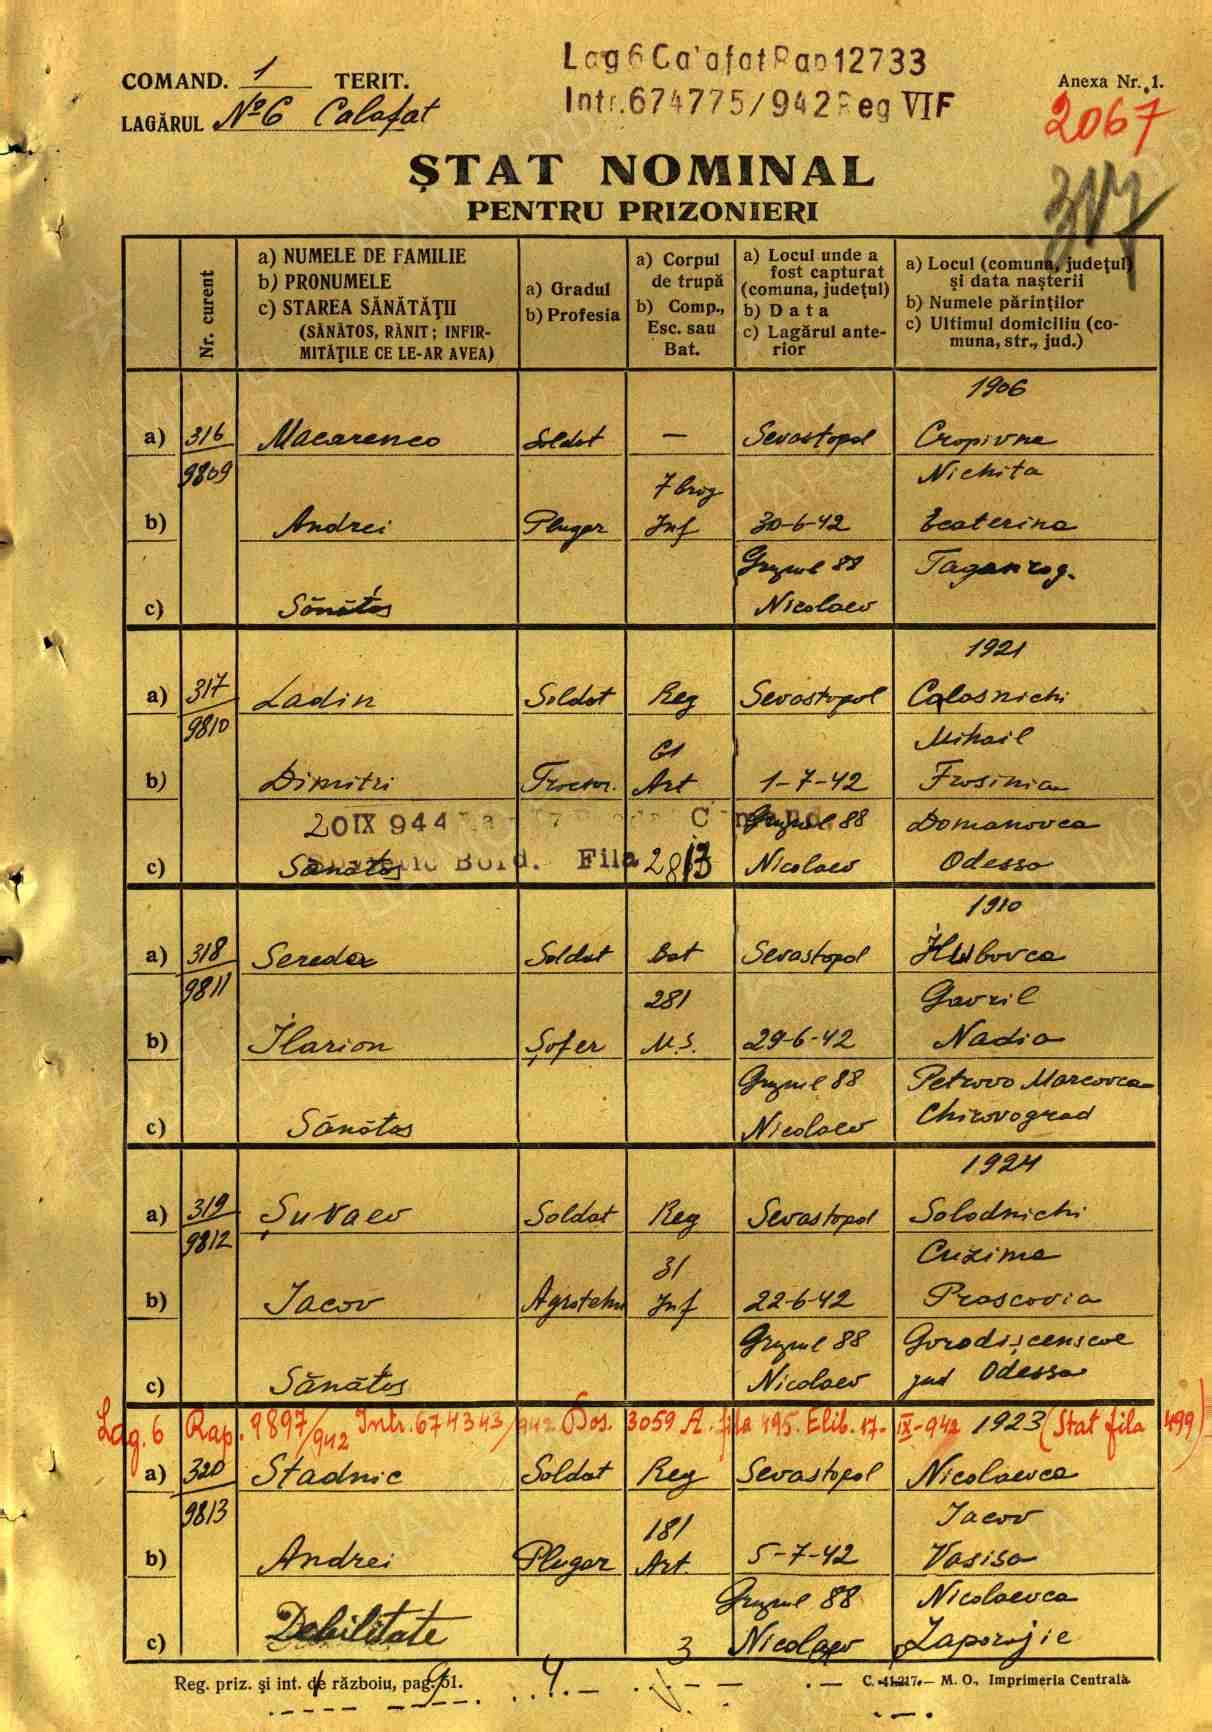 Lag 6 Calafat Rap 12733
COMAND. 1 TERIT.
Anexa Nr. 1.
Intr. 674775/942 Reg VI F
LAGĂRUL No 6 Calafat
2067
ȘTAT NOMINAL
317
PENTRU PRIZONIERI
Nr. curent
a) NUMELE DE FAMILIE
b) PRONUMELE
c) STAREA SĂNĂTĂȚII
(SĂNĂTOS, RĂNIT; INFIR-
MITĂȚILE CE LE-AR AVEA)
a) Gradul
b) Profesia
a) Corpul
de trupă
b) Comp.,
Esc. sau
Bat.
a) Locul unde a
fost capturat
(comuna, județul)
b) Data
c) Lagărul ante-
rior
a) Locul (comuna, județul)
și data nașterii
b) Numele părinților
c) Ultimul domiciliu (co-
muna, str., jud.)
1906
a) 316 Macarenco Soldat — Sevastopol Cropivna
9809 Nichita
7 brig
b) Andrei Plugar Inf 30-6-42 Ecaterina
Grupul 88 Taganrog.
c) Sănătos Nicolaev
1921
a) 317 Ladin Soldat Reg Sevastopol Calasnichi
9810 Mihail
61
b) Dimitri Art 1-7-42 Frosinia
20 IX 944 Grupul 88 Domanovca
c) Sănătos Bord. Fila Nicolaev Odessa
1910
a) 318 Sereda Soldat Bat Sevastopol
9811 281 Gavril
b) Ilarion Șofer M.S. 29-6-42 Nadia
Grupul 88 Petrovo Marcovca
c) Sănătos Nicolaev Chirovograd
1924
a) 319 Șuvaev Soldat Reg Sevastopol Solodnichi
9812 Cuzima
31
b) Iacov Agrotehn Inf 22-6-42 Prascovia
Grupul 88 Gorodișcenscoe
c) Sănătos Nicolaev jud Odessa
Lag. 6 Rap. 9897/942 Intr. 674343/942 Dos. 3059 A. fila 495. Elib. 17-IX-942 1923 (Stat fila 499)
a) 320 Stadnic Soldat Reg Sevastopol Nicolaevca
9813 181 Iacov
b) Andrei Plugar Art. 5-7-42 Vasisa
Grupul 88 Nicolaevca
c) Debilitate 3 Nicolaev Zaporojie
Reg. priz. și int. de războiu, pag. 61. 4 C. 41217. — M. O., Imprimeria Centrală